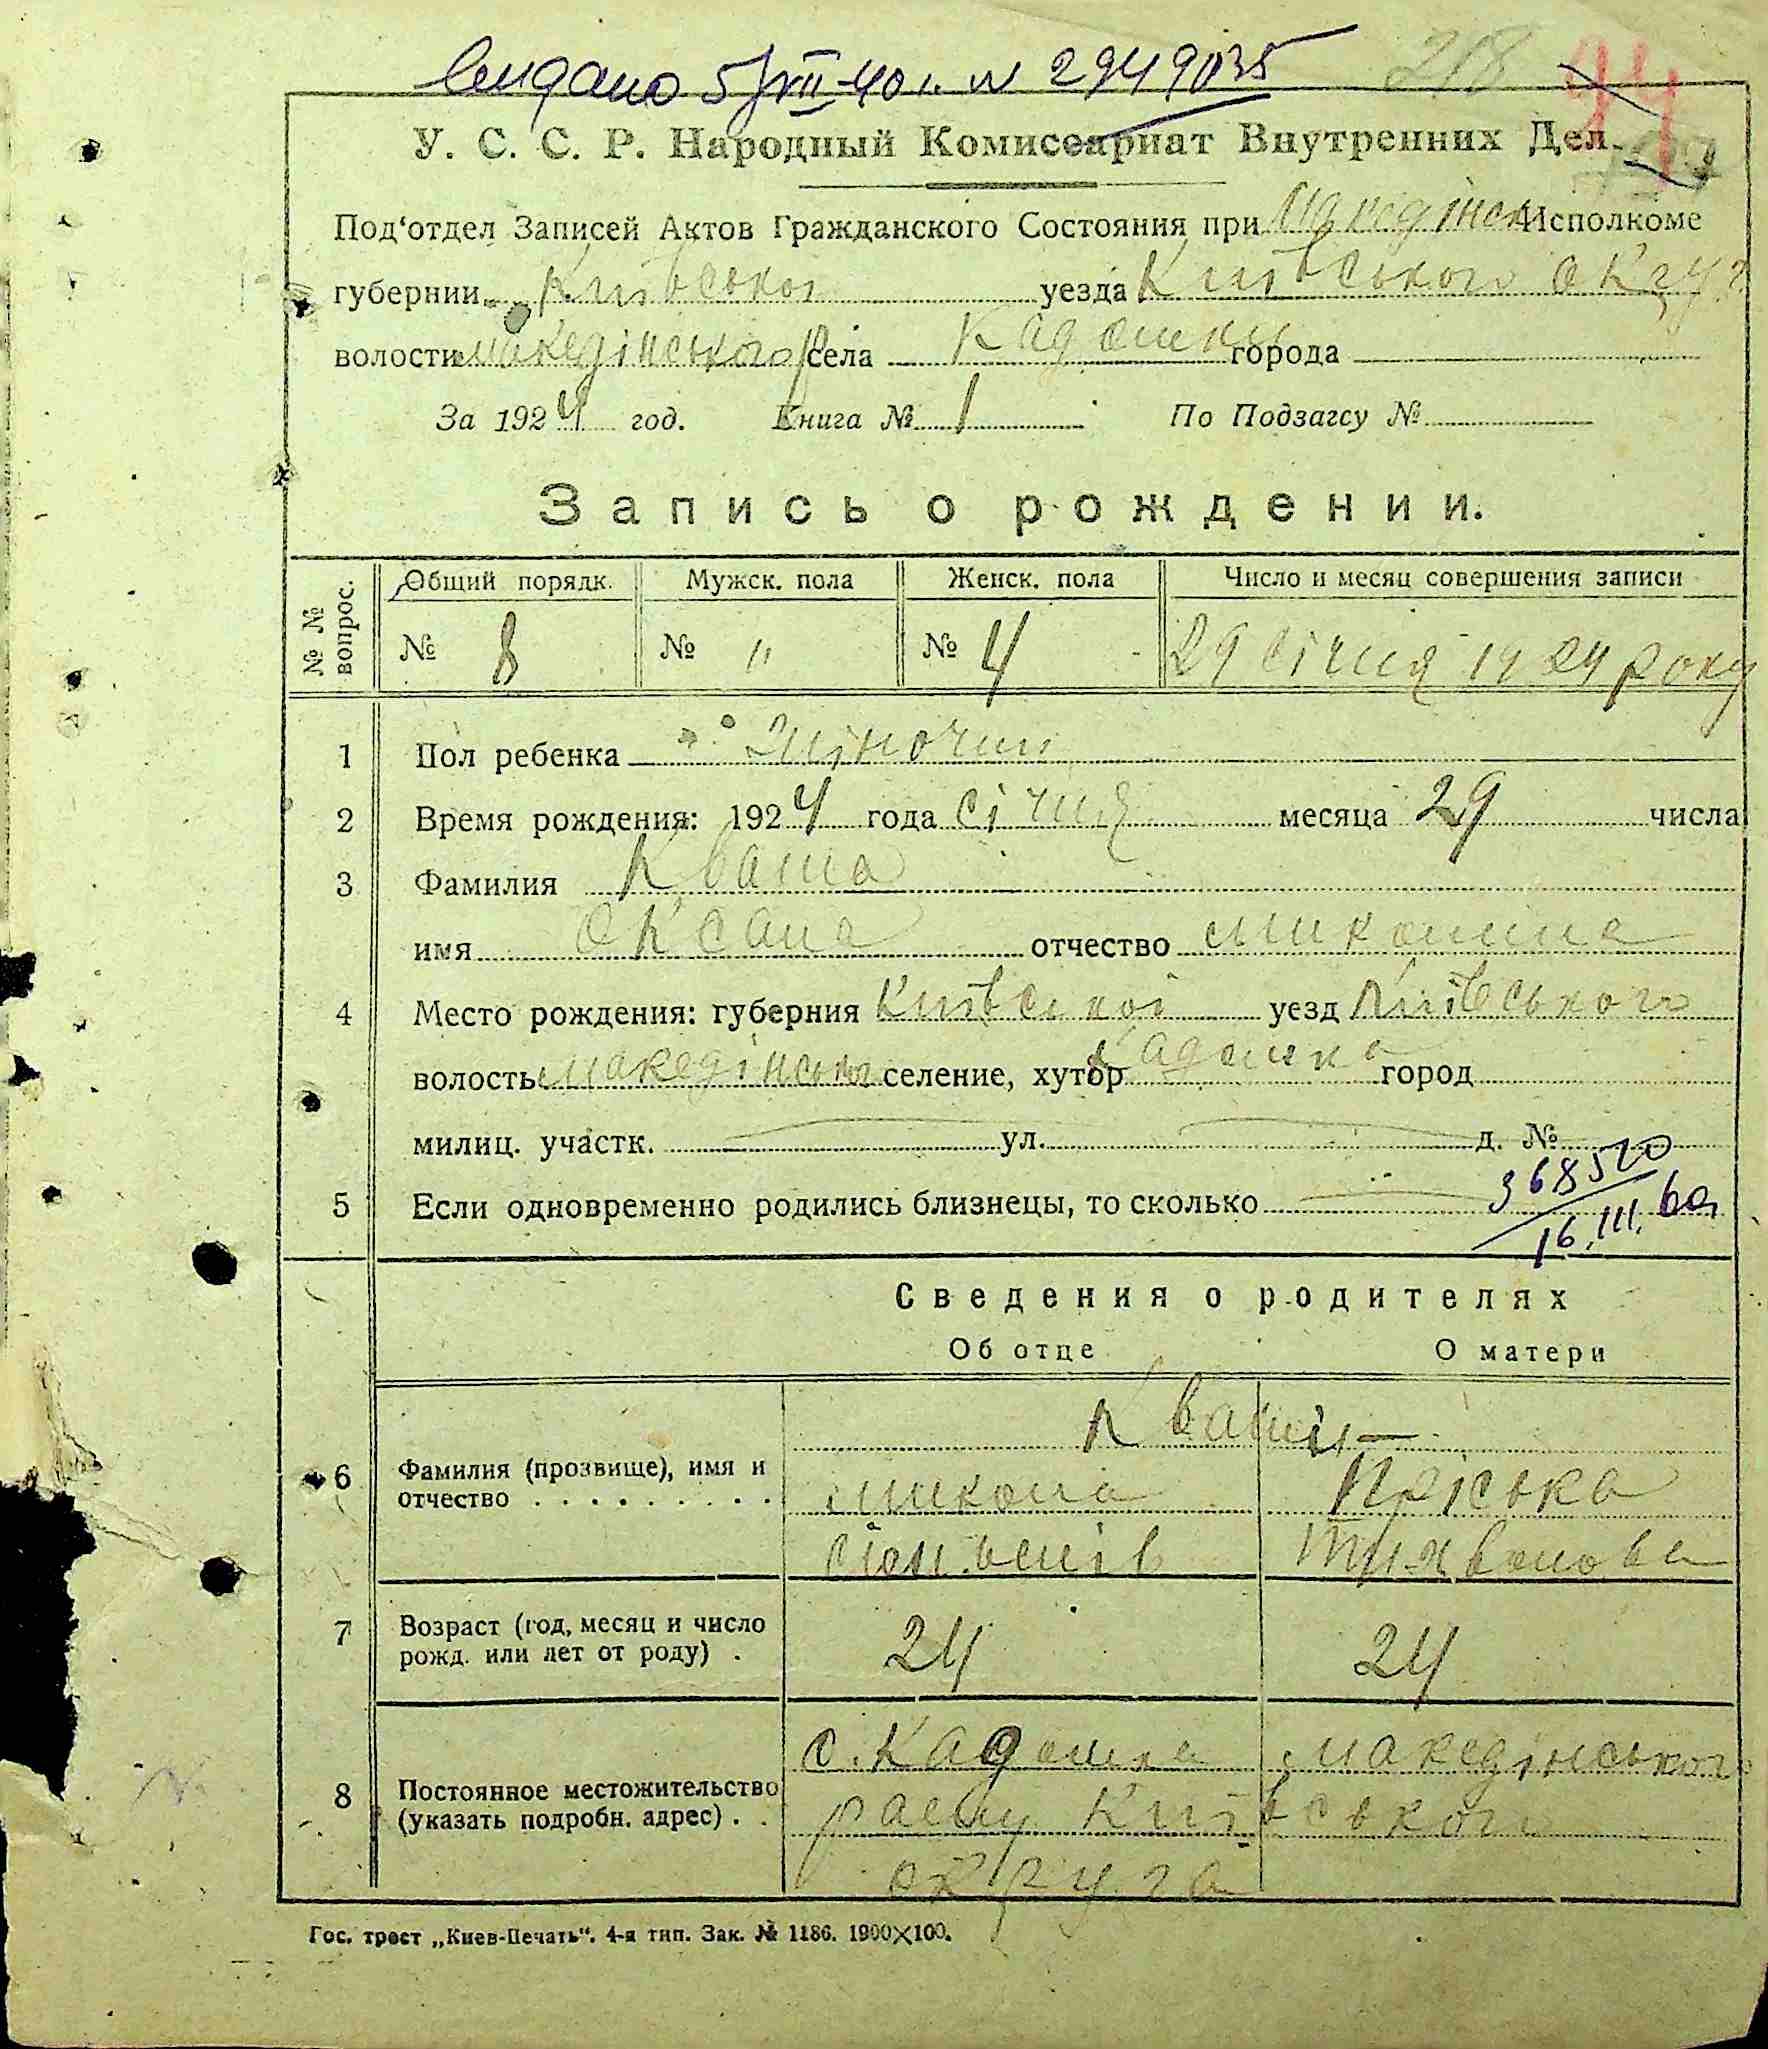 видано 5/VII 40 г. N 2949035
218
94
У. С. С. Р. Народный Комиссариат Внутренних Дел.
Под'отдел Записей Актов Гражданского Состояния при Македінськ Исполкоме
губернии Київської уезда Київського округ
волости Македінського р села Кадомка города
За 1924 год. Книга № 1 По Подзагсу №
Запись о рождении.
№ № вопрос. Общий порядк. Мужск. пола Женск. пола Число и месяц совершения записи
№ 8 № " № 4 29 січня 1924 року
1 Пол ребенка Жіночий
2 Время рождения: 1924 года січня месяца 29 числа
3 Фамилия Кваша
имя Оксана отчество Миколина
4 Место рождения: губерния Київської уезд Київського
волость Македінськ селение, хутор Кадомка город
милиц. участк. ул. д. №
5 Если одновременно родились близнецы, то сколько
368520
16.III.60
Сведения о родителях
Об отце О матери
Кваши
6 Фамилия (прозвище), имя и Микола Пріська
отчество . . . . . . . . .
7 Возраст (год, месяц и число 24 24
рожд. или лет от роду) .
с. Кадомка Македінського
8 Постоянное местожительство
(указать подробн. адрес) . . раену Київського
округа
Гос. трест „Киев-Печать“. 4-я тип. Зак. № 1186. 1900×100.